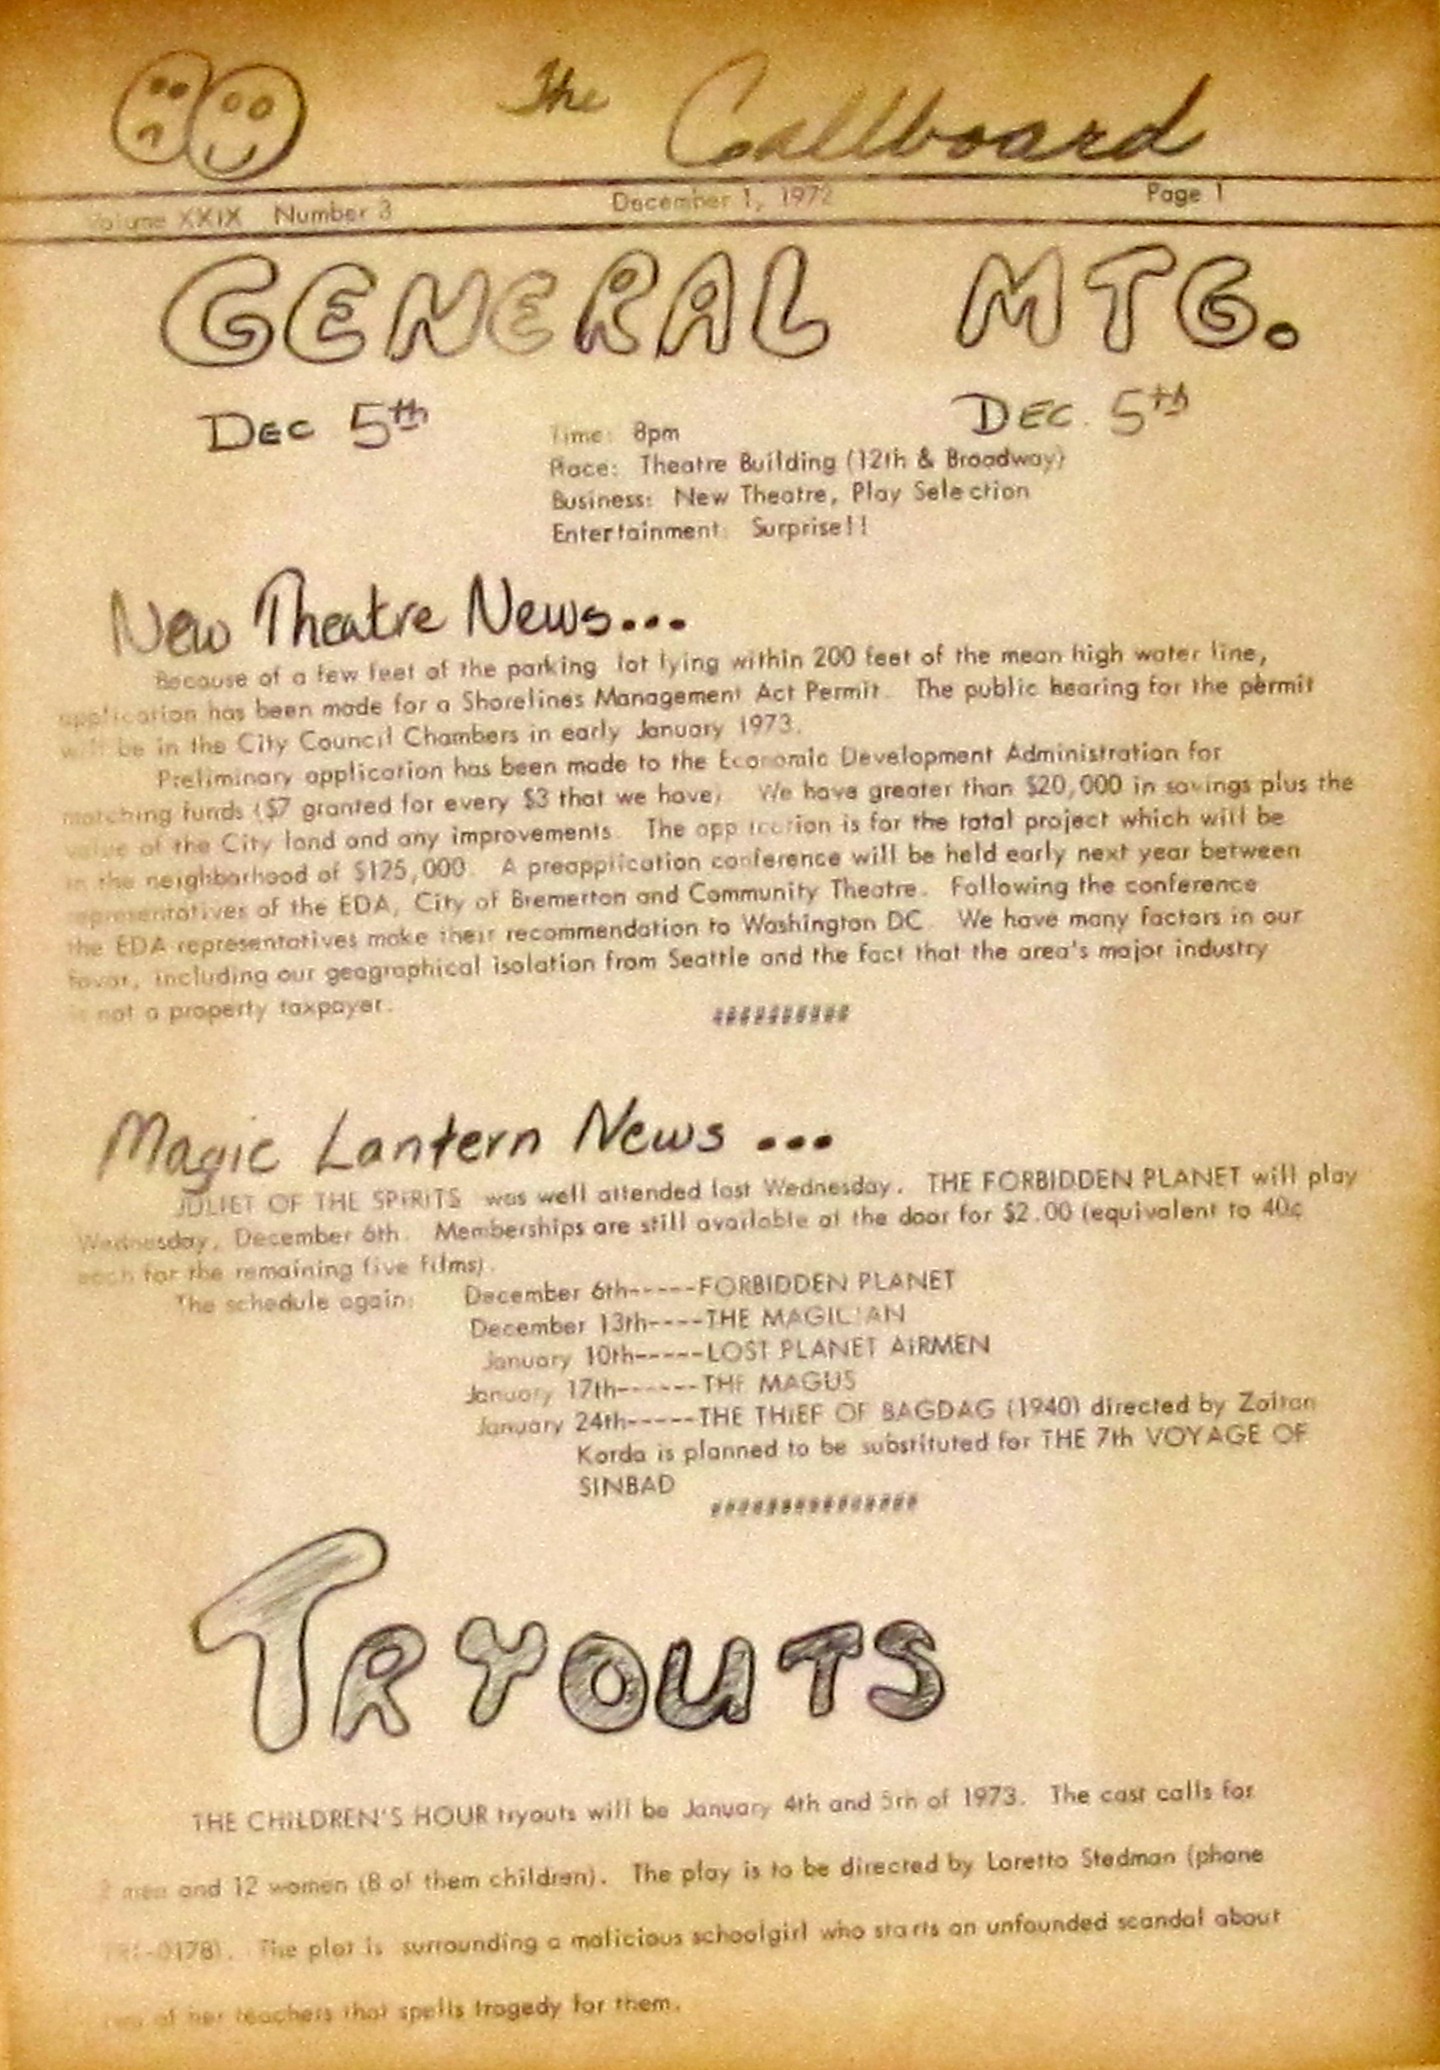 The Callboard
Volume XXIX Number 3 December 1, 1972 Page 1
GENERAL MTG.
DEC 5th DEC. 5th
Time: 8pm
Place: Theatre Building (12th & Broadway)
Business: New Theatre, Play Selection
Entertainment: Surprise!!
New Theatre News...
Because of a few feet of the parking lot lying within 200 feet of the mean high water line,
application has been made for a Shorelines Management Act Permit. The public hearing for the permit
will be in the City Council Chambers in early January 1973.
Preliminary application has been made to the Economic Development Administration for
matching funds ($7 granted for every $3 that we have). We have greater than $20,000 in savings plus the
value of the City land and any improvements. The application is for the total project which will be
in the neighborhood of $125,000. A preapplication conference will be held early next year between
representatives of the EDA, City of Bremerton and Community Theatre. Following the conference
the EDA representatives make their recommendation to Washington DC. We have many factors in our
favor, including our geographical isolation from Seattle and the fact that the area's major industry
is not a property taxpayer.
##########
Magic Lantern News ...
JULIET OF THE SPIRITS was well attended last Wednesday. THE FORBIDDEN PLANET will play
Wednesday, December 6th. Memberships are still available at the door for $2.00 (equivalent to 40¢
each for the remaining five films).
The schedule again: December 6th-----FORBIDDEN PLANET
December 13th----THE MAGICIAN
January 10th-----LOST PLANET AIRMEN
January 17th------THE MAGUS
January 24th-----THE THIEF OF BAGDAG (1940) directed by Zoltan
Korda is planned to be substituted for THE 7th VOYAGE OF
SINBAD
###############
TRYOUTS
THE CHILDREN'S HOUR tryouts will be January 4th and 5th of 1973. The cast calls for
2 men and 12 women (8 of them children). The play is to be directed by Loretto Stedman (phone
-0178). The plot is surrounding a malicious schoolgirl who starts an unfounded scandal about
two of her teachers that spells tragedy for them.